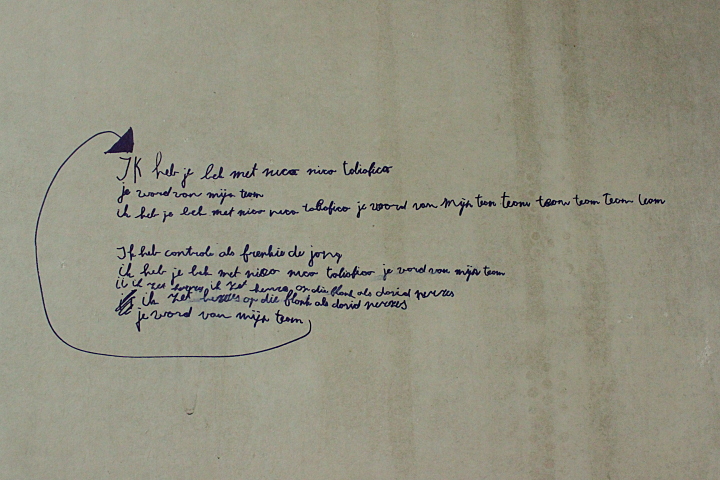 IK heb je lek met nico nico toliofico
je word van mijn team
ik heb je lek met nico nico toliofico je woord van mijn teon teonu teonu teom Teom leom
Ik heb controle als frenkie de jong
ik heb je lek met nico nico toliofico je word van mijn team
ik zet heures ik zet heures op die flonk als david nerezes
ik zet heures op die flonk als david nerezes
je word van mijn teom